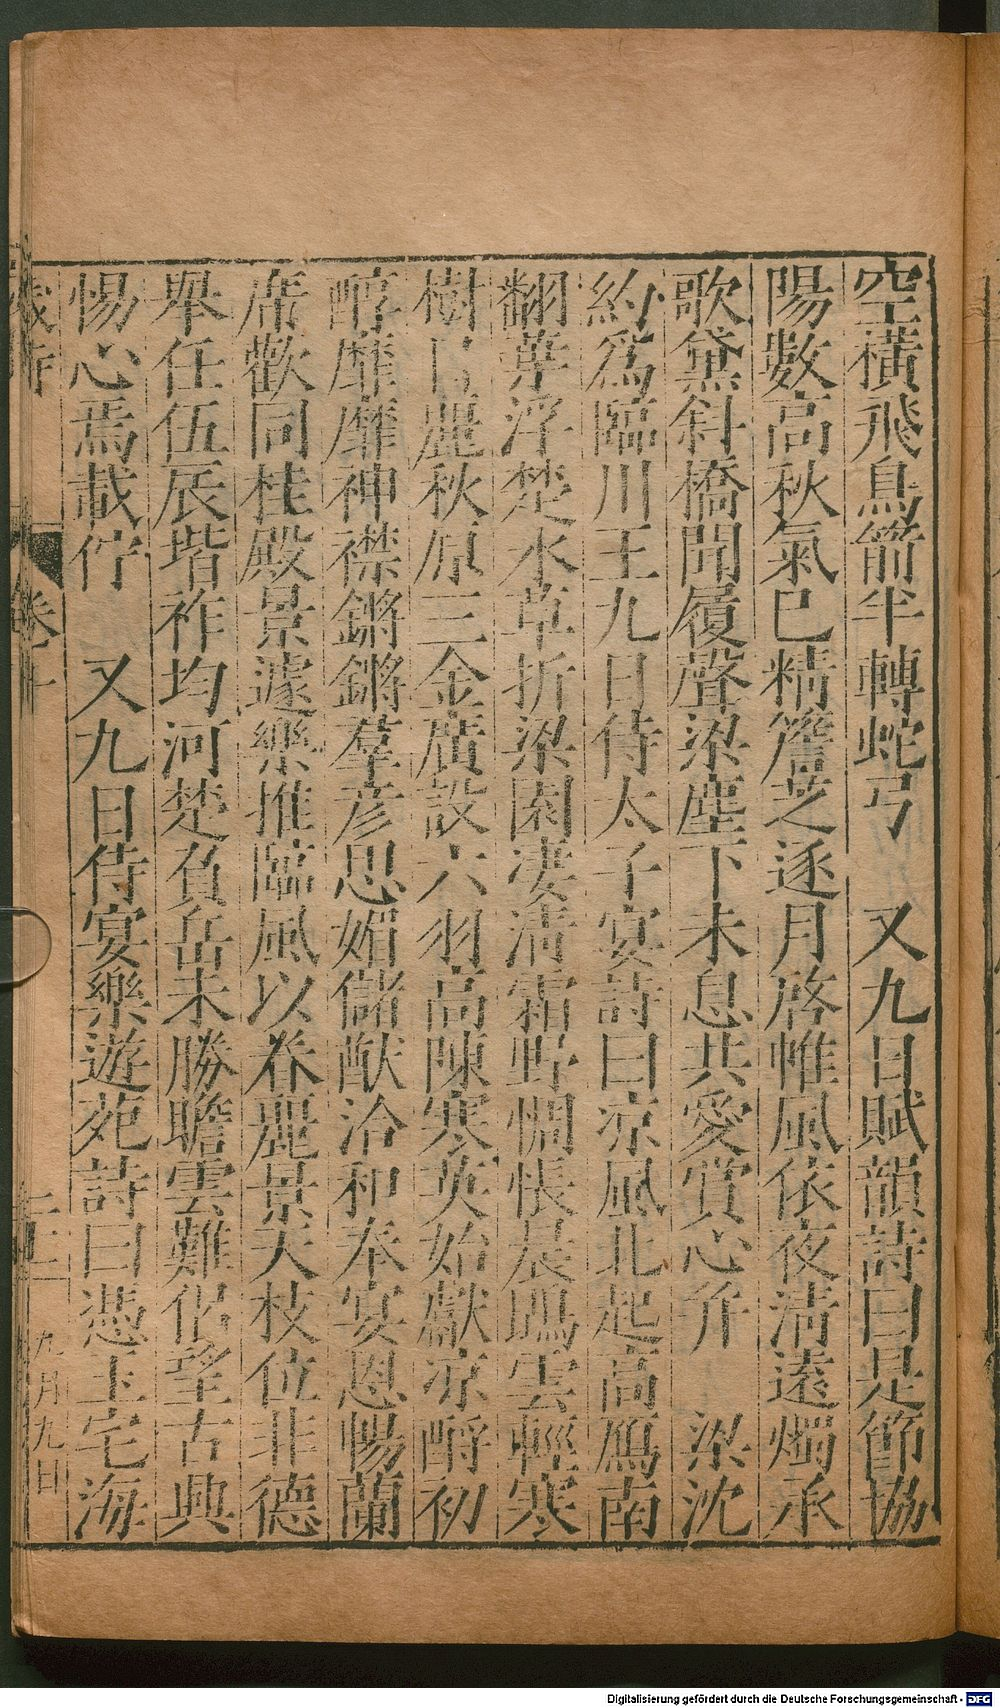 空橫飛鳥箭半轉蛇弓　又九日賦韻詩曰是節協
陽數高秋氣已精簷芝逐月啓惟風依夜清遠燭承
歌黛斜橋聞履聲梁塵下未息共愛賞心并　梁沈
約爲臨川王九日侍太子宴詩曰凉風北起高鴈南
翻葉浮楚水草折梁園淒清霜野惆悵晨鵾雲輕寒
樹日麗秋原三金廣設六羽高陳寒英始獻凉酎初
醇靡靡神襟鏘鏘羣彥思媚儲猷洽和奉宴恩暢蘭
席歡同桂殿景遽樂推臨風以眷麗景天枝位非德
舉任伍辰堦祚均河楚負岳未勝瞻雲難侶望古典
惕心焉載佇　又九日侍宴樂遊苑詩曰憑玉宅海
歲時
卷十
二三
九月九日
Digitalisierung gefördert durch die Deutsche Forschungsgemeinschaft - DFG